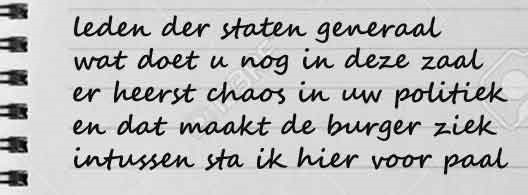 leden der staten generaal
wat doet u nog in deze zaal
er heerst chaos in uw politiek
en dat maakt de burger ziek
intussen sta ik hier voor paal